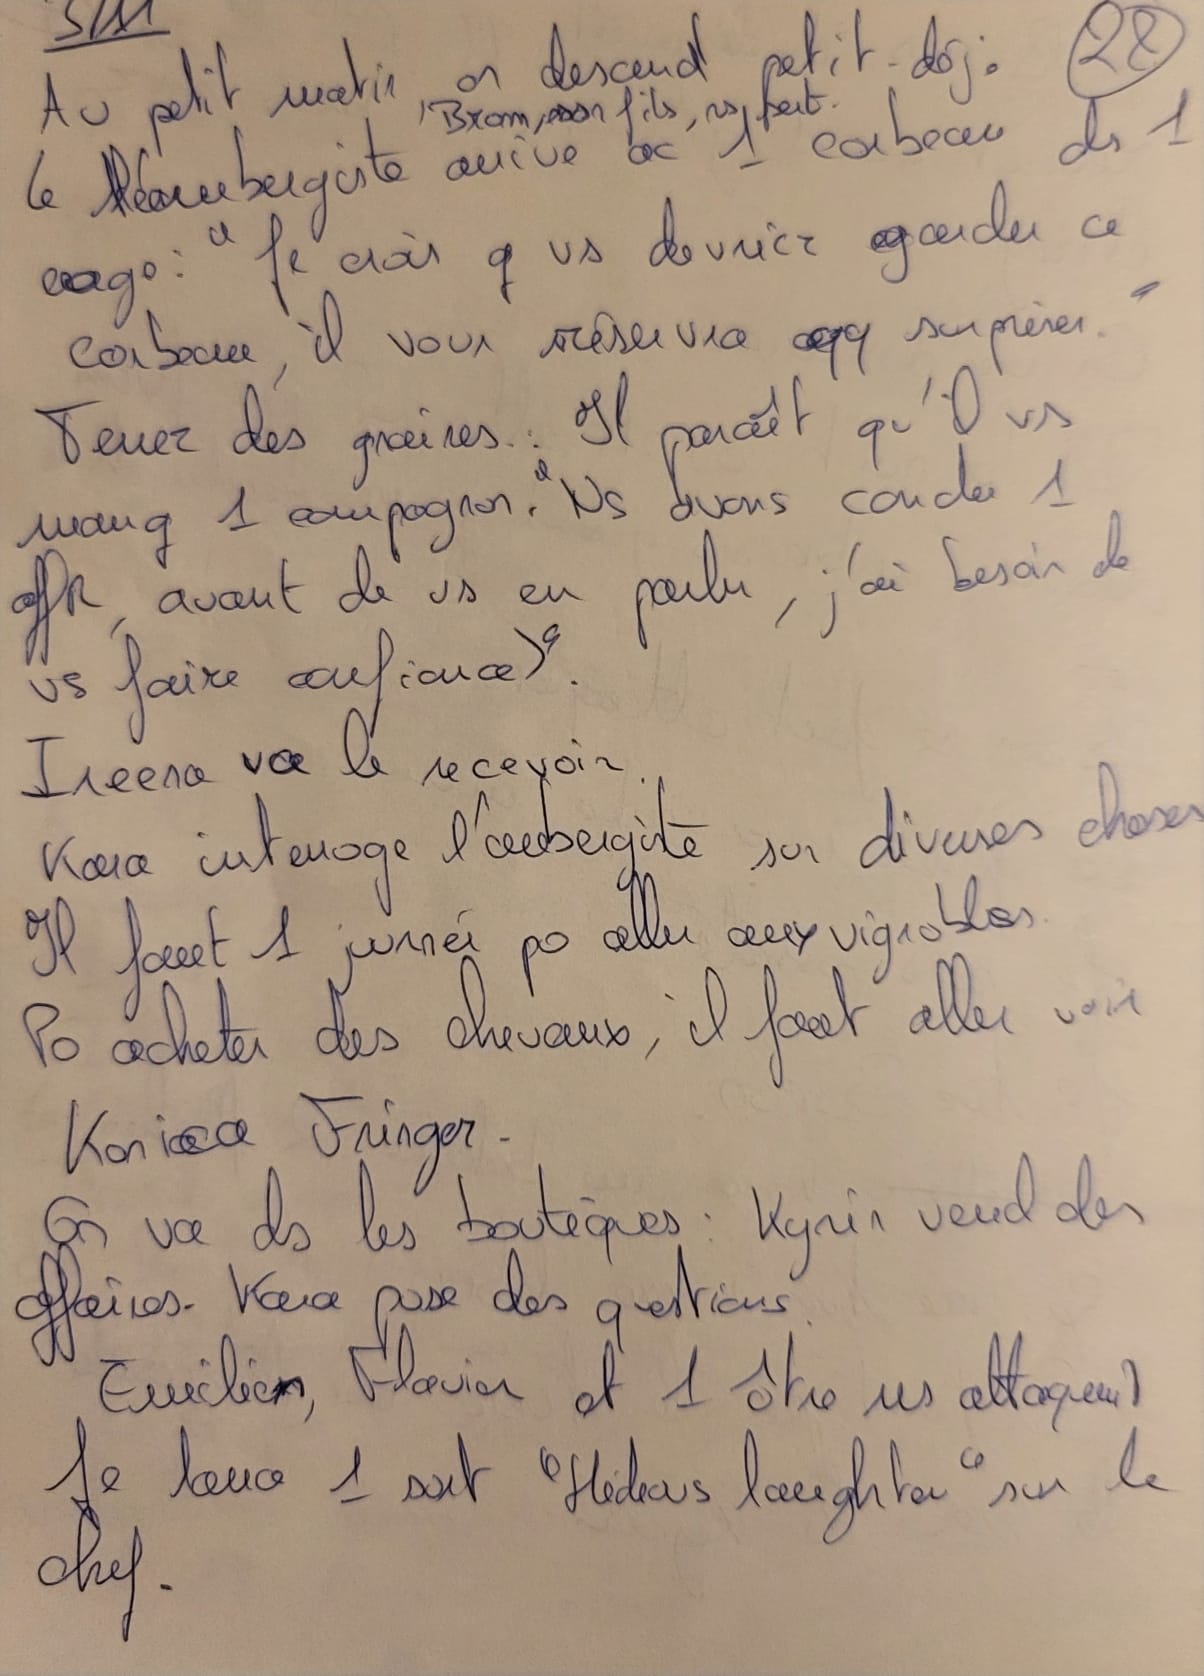 5/11
28
Au petit matin, on descend petit-déj.
Brom, son fils, ns sert.
Le aubergiste arrive ac 1 corbeau ds 1
cage : "Je crois q vs devriez garder ce
corbeau, il vous réservra qq surprises."
Tenez des graines. : Il paraît qu'il vs
manq 1 compagnon. "Ns avons conclu 1
affR, avant de vs en parler, j'ai besoin de
vs faire confiance)".
Ireena va le recevoir.
Kara interroge l'aubergiste sur diverses choses
Il faut 1 journée po aller aux vignobles.
Po acheter des chevaux, il faut aller voir
Fringor.
On va ds les boutiques : Kyrin vend des
affaires. Kara pose des questions.
Emilien, Flavien et 1 ôtre ns attaquent
Je lance 1 sort "Hideous laughter" sur le
chef.